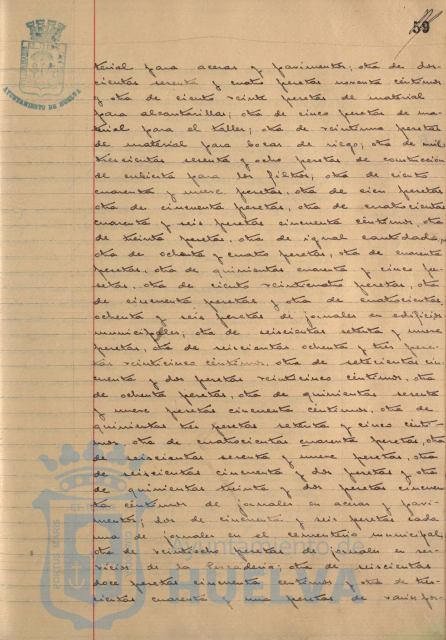 59
AYUNTAMIENTO DE HUELVA
terial para aceras y pavimentos, otra de dos-
cientas sesenta y cuatro pesetas noventa céntimos
y otra de ciento veinte pesetas de material
para alcantarillas; otra de cinco pesetas de ma-
terial para el taller; otra de veintiuna pesetas
de material para bocas de riego, otra de mil
trescientas sesenta y ocho pesetas de construcción
de cubierta para los filtros, otra de ciento
cuarenta y nueve pesetas, otra de cien pesetas
otra de cincuenta pesetas, otra de cuatrocientas
cuarenta y seis pesetas cincuenta céntimos, otra
de treinta pesetas, otra de igual cantidad,
otra de ochenta y cuatro pesetas, otra de cuarenta
pesetas, otra de quinientas cuarenta y cinco pe-
setas, otra de ciento veinticuatro pesetas, otra
de cincuenta pesetas y otra de cuatrocientas
ochenta y seis pesetas de jornales en edificios
municipales; otra de seiscientas setenta y nueve
pesetas, otra de seiscientas ochenta y tres pese-
tas veinticinco céntimos, otra de setecientas cin-
cuenta y dos pesetas veinticinco céntimos, otra
de ochenta pesetas, otra de quinientas sesenta
y nueve pesetas cincuenta céntimos, otra de
quinientas tres pesetas setenta y cinco cénti-
mos, otra de cuatrocientas cuarenta pesetas, otra
de seiscientas sesenta y nueve pesetas, otra
de seiscientas cincuenta y dos pesetas y otra
de quinientas treinta y dos pesetas cincuen-
ta céntimos de jornales en aceras y pavi-
mentos; dos de cincuenta y seis pesetas cada
una de jornales en el cementerio municipal,
otra de veintiocho pesetas de jornales en ser-
vicios de la Pescadería; otra de seiscientas
doce pesetas cincuenta céntimos y otra de tres-
cientas cuarenta y una pesetas de varios jor-
Ayuntamiento de
HUELVA